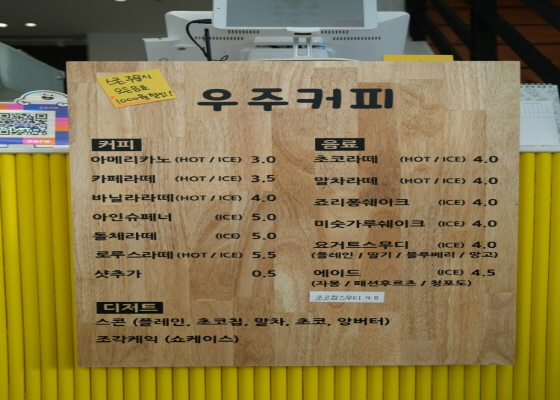 스콘 주문시
모든음료
1000원 할인!
우주커피
커피
아메리카노 (HOT / ICE) 3.0
카페라떼 (HOT / ICE) 3.5
바닐라라떼 (HOT / ICE) 4.0
아인슈페너 (ICE) 5.0
돌체라떼 (ICE) 5.0
로투스라떼 (HOT / ICE) 5.5
샷추가 0.5
음료
초코라떼 (HOT / ICE) 4.0
말차라떼 (HOT / ICE) 4.0
죠리퐁쉐이크 (ICE) 4.0
미숫가루쉐이크 (ICE) 4.0
요거트스무디 (ICE) 4.0
(플레인 / 딸기 / 블루베리 / 망고)
에이드 (ICE) 4.5
(자몽 / 패션후르츠 / 청포도)
초코칩스무디 4.0
디저트
스콘 (플레인, 초코칩, 말차, 초코, 앙버터)
조각케익 (쇼케이스)